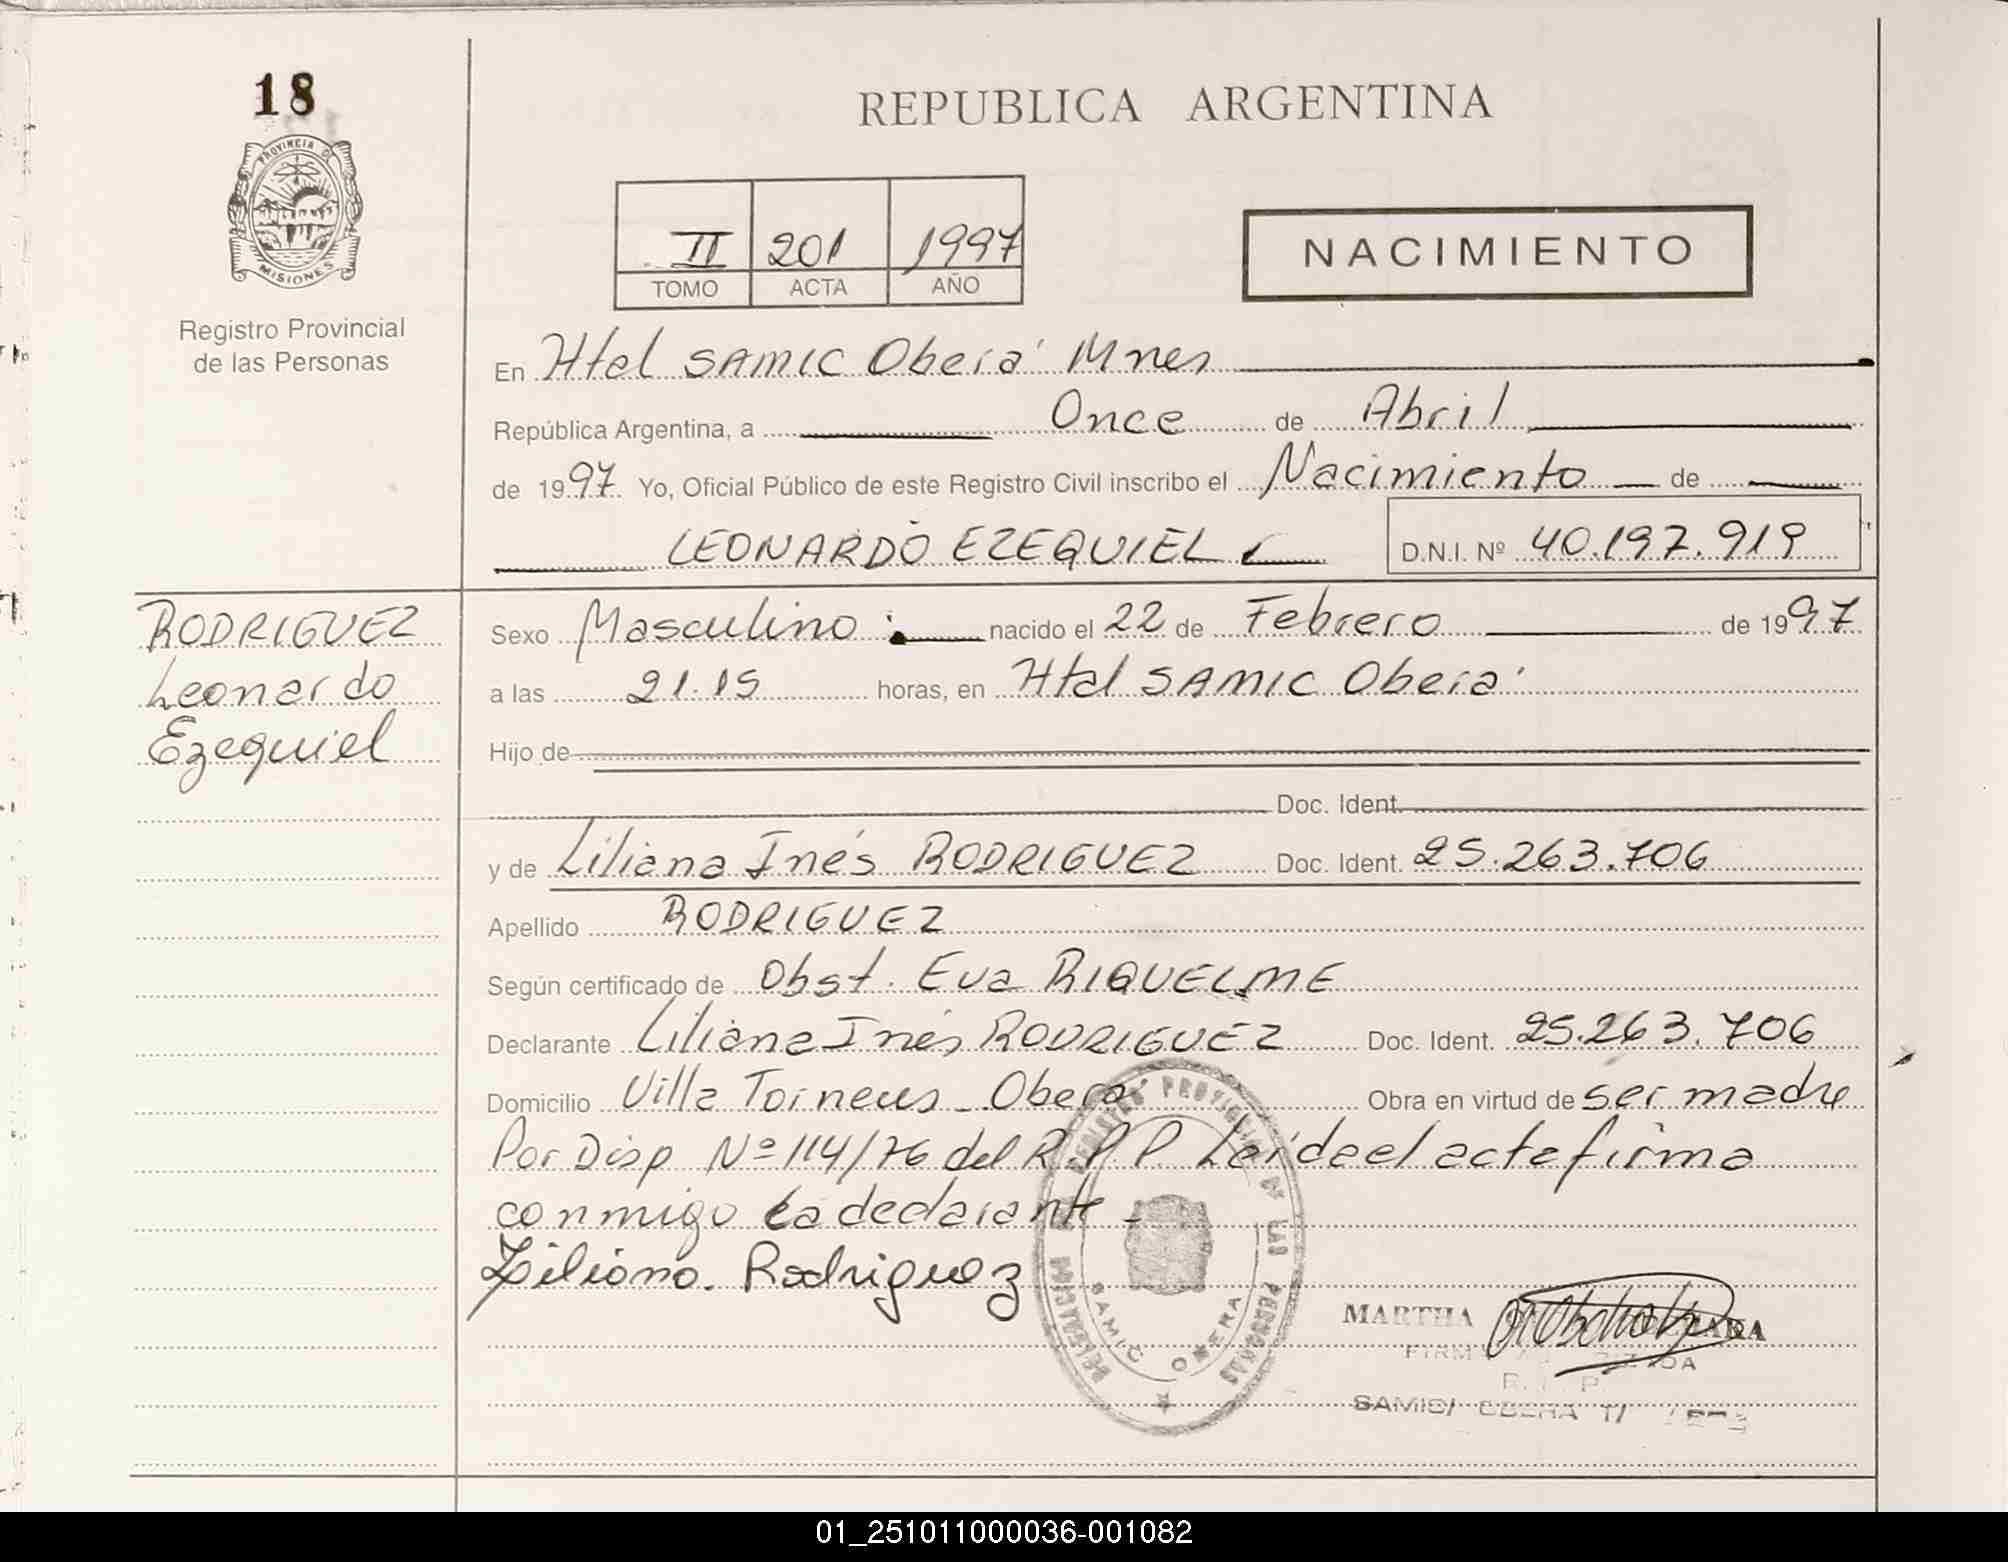 18
PROVINCIA DE
MISIONES
Registro Provincial
de las Personas
REPUBLICA ARGENTINA
II 201 1997
TOMO ACTA AÑO
NACIMIENTO
En Htal SAMIC Oberá Mnes
República Argentina, a Once de Abril
de 1997 Yo, Oficial Público de este Registro Civil inscribo el Nacimiento de
LEONARDO EZEQUIEL D.N.I. Nº 40.197.919
RODRIGUEZ
Leonardo
Ezequiel
Sexo Masculino nacido el 22 de Febrero de 1997
a las 21.15 horas, en Htal SAMIC Oberá
Hijo de
Doc. Ident.
y de Liliana Inés RODRIGUEZ Doc. Ident. 25.263.706
Apellido RODRIGUEZ
Según certificado de Obst. Eva RIQUELME
Declarante Liliana Inés RODRIGUEZ Doc. Ident. 25.263.706
Domicilio Villa Torneus - Oberá Obra en virtud de ser madre
Por Disp Nº 114/76 del R.P.P. Leída el acta firma
conmigo la declarante -
Liliana. Rodriguez
REGISTRO PROVINCIAL DE LAS PERSONAS
DELEGACION
SAMIC OBERA
MARTHA
R. P.
SAMIC/ OBERA
01_251011000036-001082